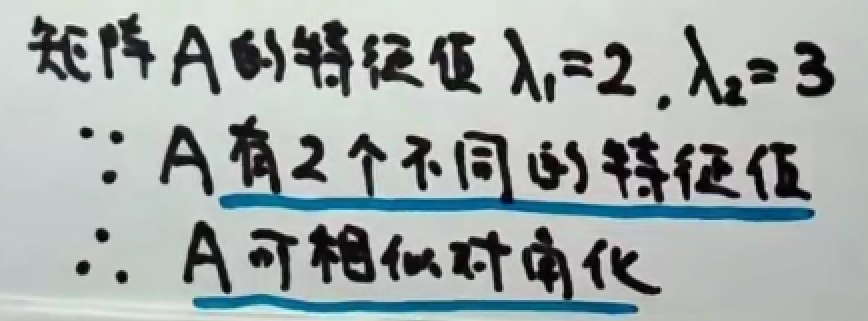 矩阵A的特征值 λ₁=2, λ₂=3
∵ A有2个不同的特征值
∴ A可相似对角化